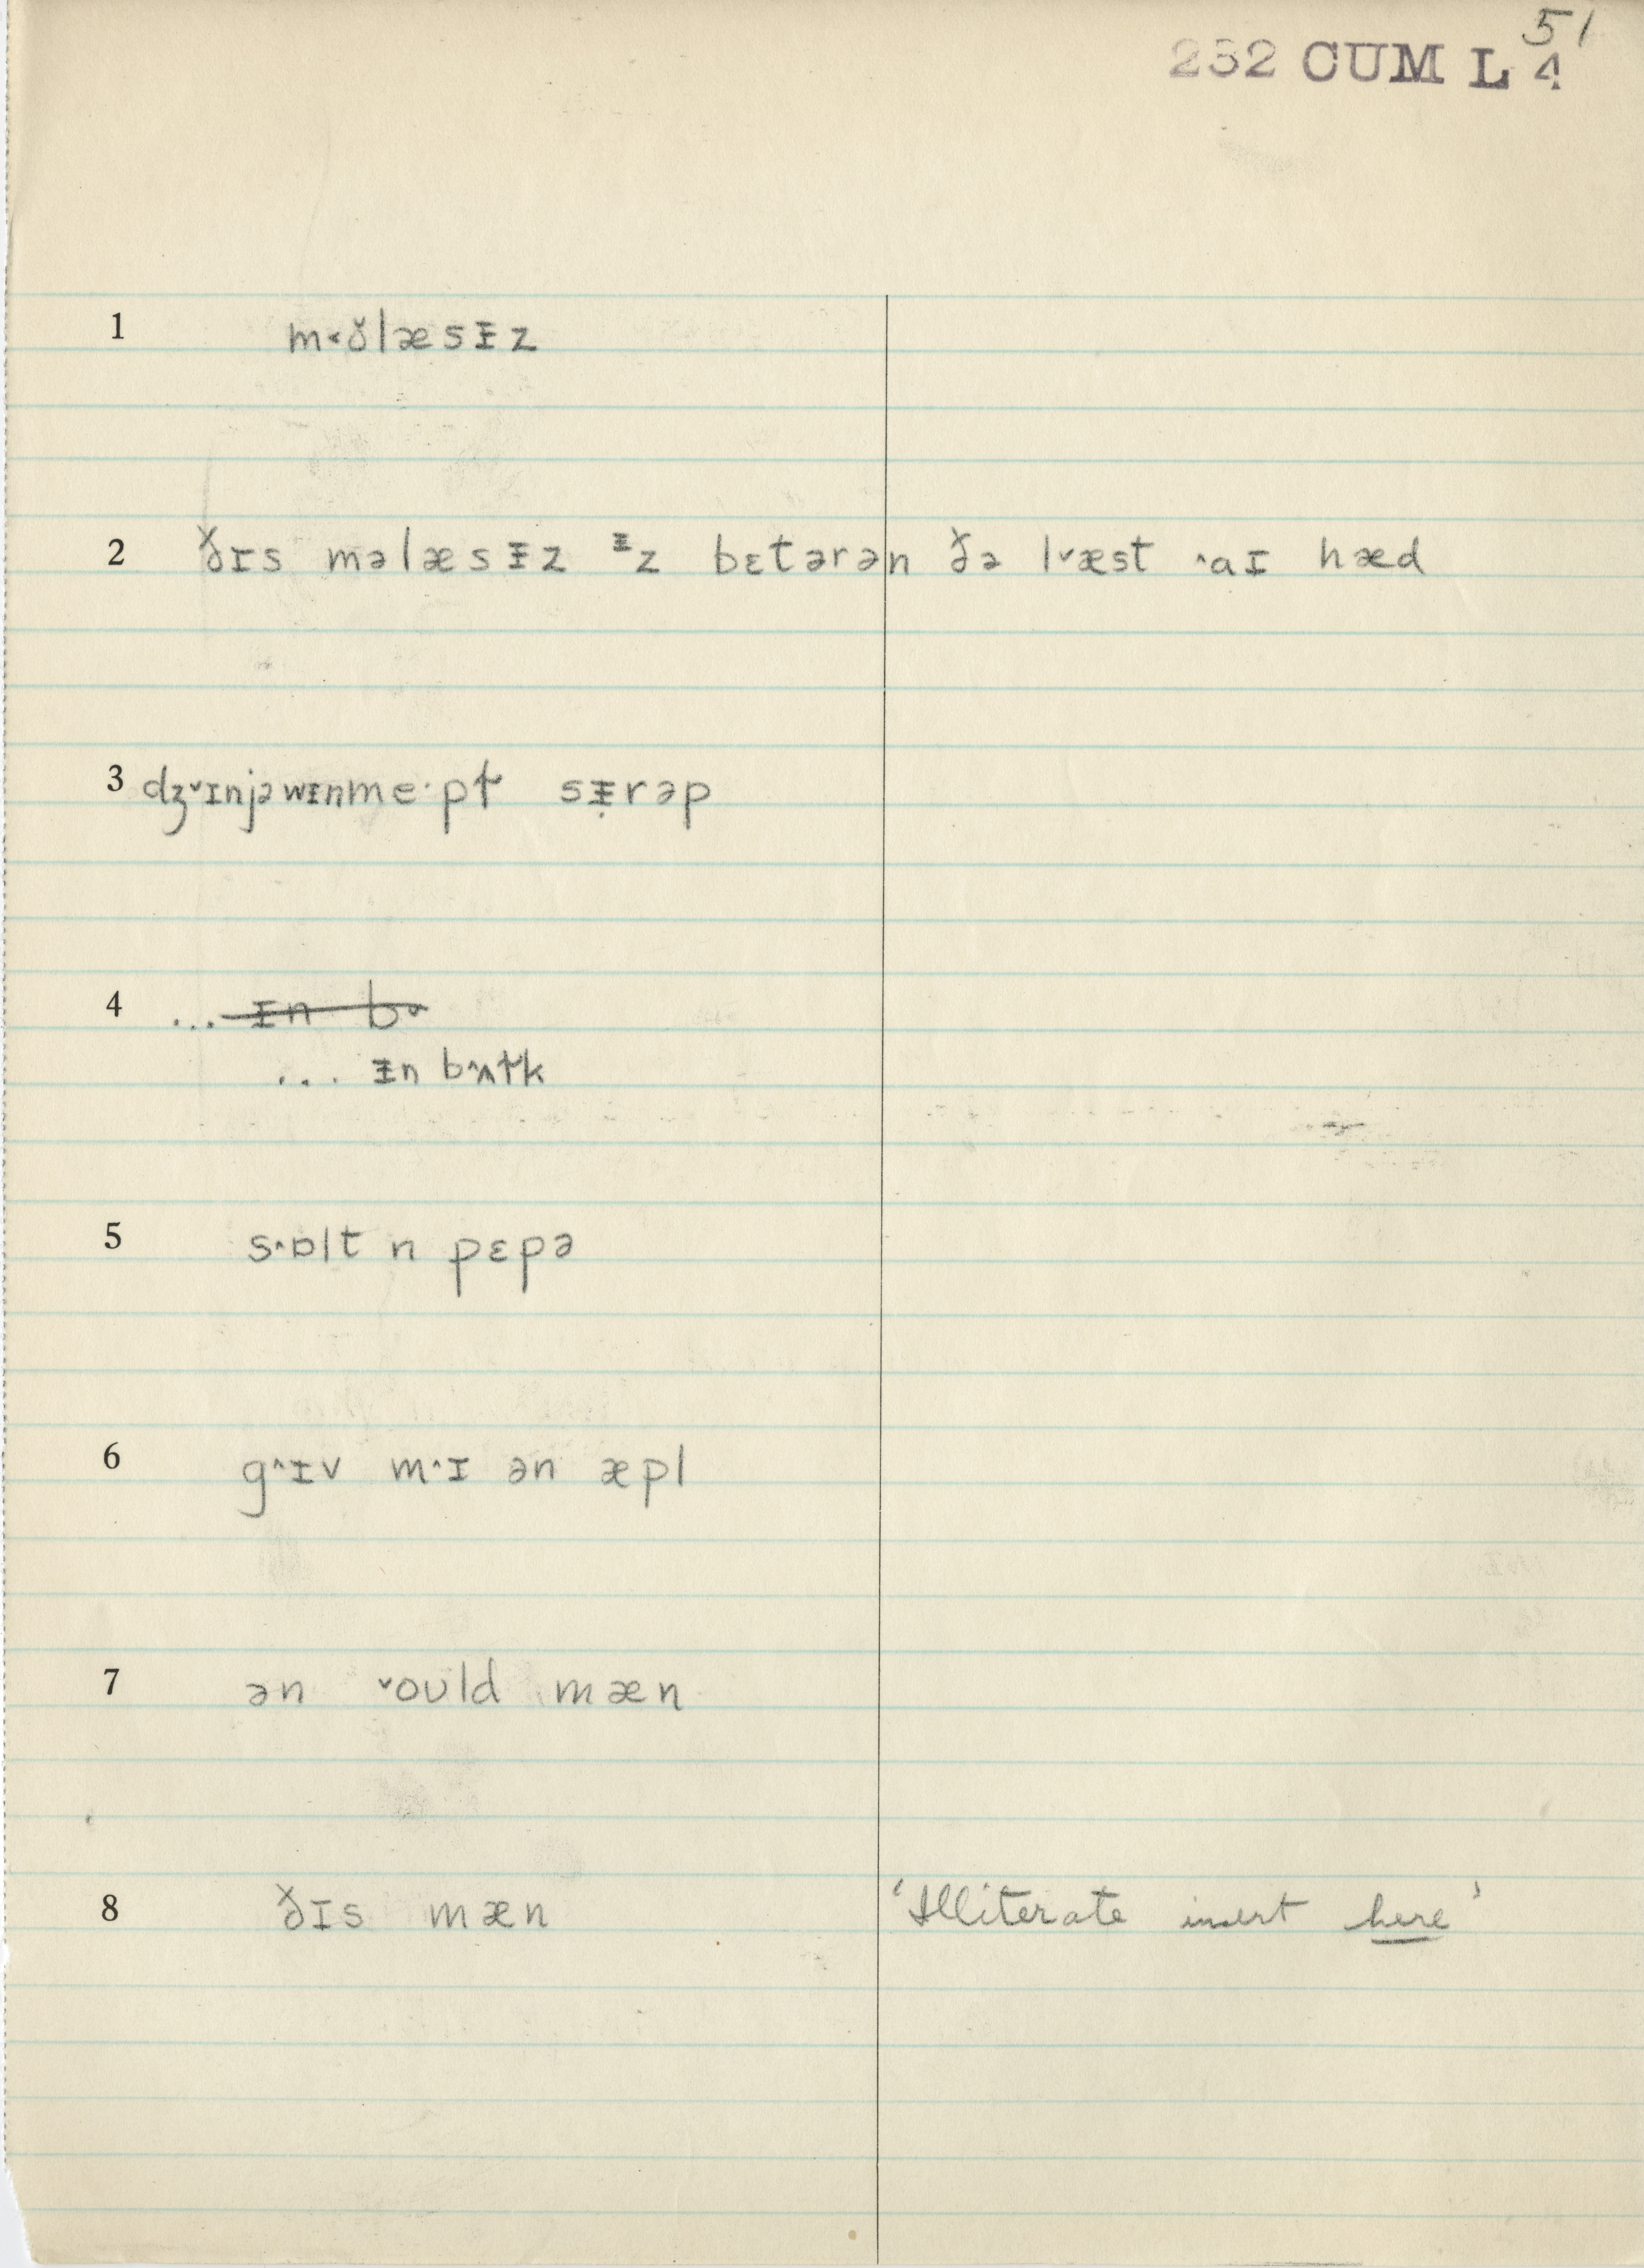 51
232 CUM L 4
1 m˂ö̆læsᵻz
2 ðɪs məlæsᵻz ᵻz bɛtərən ðə l˅æst ˄aɪ hæd
3 dʒ˅ɪnjəwᵻnme·pł sᵻ̣rəp
4 ... ɪn bʌ
... ᵻn b˄ʌɫk
5 s˄ɒlt n pɛpə
6 g˄ɪv m˄ɪ ən æpl
7 ən ˅oʊld mæn
8 ðɪs mæn 'Illiterate insert here'